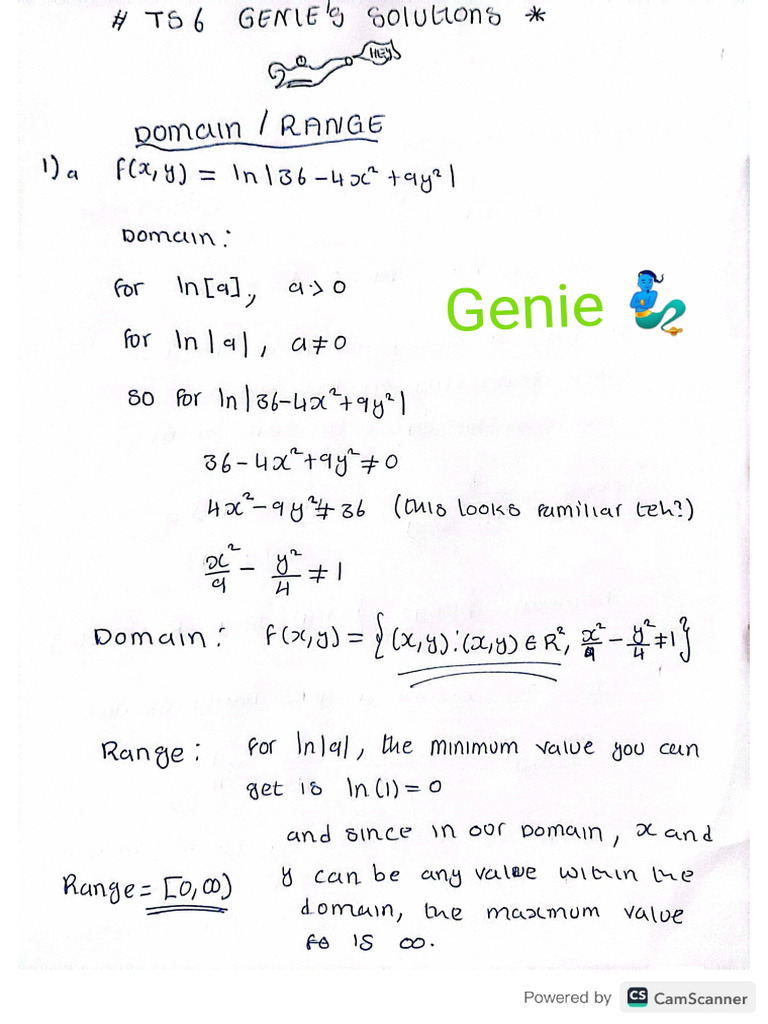 # TS6 GENIE's SOLUTIONS *
HEY
DOMAIN / RANGE
1) a f(x, y) = ln|36 - 4x² + 9y²|
Domain:
for ln[a], a > 0
for ln|a|, a ≠ 0
Genie
so for ln|36-4x²+9y²|
36 - 4x² + 9y² ≠ 0
4x² - 9y² ≠ 36 (this looks familiar teh?)
x²/9 - y²/4 ≠ 1
Domain: f(x,y) = {(x,y):(x,y) ∈ R², x²/9 - y²/4 ≠ 1}
Range: for ln|a|, the minimum value you can
get is ln(1) = 0
and since in our domain, x and
y can be any value within the
Range = [0,∞)
domain, the maximum value
is ∞.
Powered by CS CamScanner